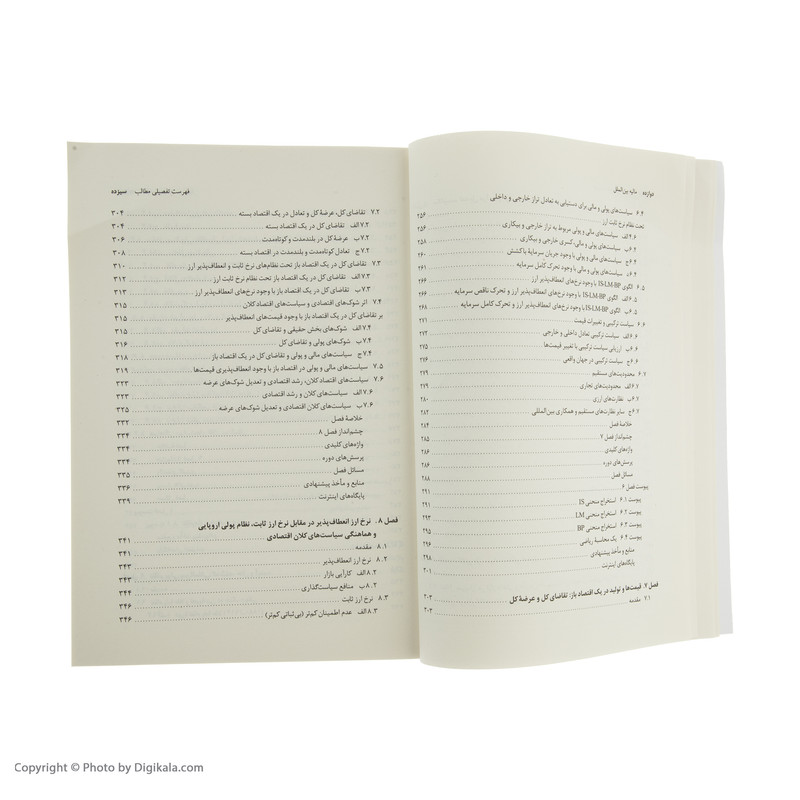 دوازده مالیه بین‌الملل
۶.۴ سیاست‌های پولی و مالی برای دستیابی به تعادل تراز خارجی و داخلی
تحت نظام نرخ ثابت ارز ۲۵۶
۶.۴الف سیاست‌های مالی و پولی مربوط به تراز خارجی و بیکاری ۲۵۶
۶.۴ب سیاست‌های پولی و مالی، کسری خارجی و بیکاری ۲۵۸
۶.۴ج سیاست‌های پولی و مالی با وجود جریان سرمایهٔ باکشش ۲۶۰
۶.۴د سیاست‌های پولی و مالی با وجود تحرک کامل سرمایه ۲۶۱
۶.۵ الگوی IS-LM-BP با وجود نرخ‌های انعطاف‌پذیر ارز ۲۶۶
۶.۵الف الگوی IS-LM-BP با وجود نرخ‌های انعطاف‌پذیر ارز و تحرک ناقص سرمایه ۲۶۶
۶.۵ب الگوی IS-LM-BP با وجود نرخ‌های انعطاف‌پذیر ارز و تحرک کامل سرمایه ۲۶۸
۶.۶ سیاست ترکیبی و تغییرات قیمت ۲۷۱
۶.۶الف سیاست ترکیبی تعادل داخلی و خارجی ۲۷۲
۶.۶ب ارزیابی سیاست ترکیبی با تغییر قیمت‌ها ۲۷۵
۶.۶ج سیاست ترکیبی در جهان واقعی ۲۷۶
۶.۷ محدودیت‌های مستقیم ۲۷۹
۶.۷الف محدودیت‌های تجاری ۲۷۹
۶.۷ب نظارت‌های ارزی ۲۸۰
۶.۷ج سایر نظارت‌های مستقیم و همکاری بین‌المللی ۲۸۲
خلاصهٔ فصل ۲۸۴
چشم‌انداز فصل ۷ ۲۸۵
واژه‌های کلیدی ۲۸۶
پرسش‌های دوره ۲۸۶
مسائل فصل ۲۸۸
پیوست فصل ۶ ۲۹۱
پیوست ۶.۱ استخراج منحنی IS ۲۹۱
پیوست ۶.۲ استخراج منحنی LM ۲۹۳
پیوست ۶.۳ استخراج منحنی BP ۲۹۵
پیوست ۶.۴ یک محاسبهٔ ریاضی ۲۹۶
منابع و مآخذ پیشنهادی ۲۹۸
پایگاه‌های اینترنت ۳۰۱
فصل ۷. قیمت‌ها و تولید در یک اقتصاد باز: تقاضای کل و عرضهٔ کل ۳۰۳
۷.۱ مقدمه ۳۰۳
فهرست تفصیلی مطالب سیزده
۷.۲ تقاضای کل، عرضهٔ کل و تعادل در یک اقتصاد بسته ۳۰۴
۷.۲الف تقاضای کل در یک اقتصاد بسته ۳۰۴
۷.۲ب عرضهٔ کل در بلندمدت و کوتاه‌مدت ۳۰۶
۷.۲ج تعادل کوتاه‌مدت و بلندمدت در اقتصاد بسته ۳۰۸
۷.۳ تقاضای کل در یک اقتصاد باز تحت نظام‌های نرخ ثابت و انعطاف‌پذیر ارز ۳۱۰
۷.۳الف تقاضای کل در یک اقتصاد باز تحت نظام نرخ ثابت ارز ۳۱۲
۷.۳ب تقاضای کل در یک اقتصاد باز با وجود نرخ‌های انعطاف‌پذیر ارز ۳۱۳
۷.۴ اثر شوک‌های اقتصادی و سیاست‌های اقتصاد کلان ۳۱۵
بر تقاضای کل در یک اقتصاد باز با وجود قیمت‌های انعطاف‌پذیر ۳۱۵
۷.۴الف شوک‌های بخش حقیقی و تقاضای کل ۳۱۵
۷.۴ب شوک‌های پولی و تقاضای کل ۳۱۶
۷.۴ج سیاست‌های مالی و پولی و تقاضای کل در یک اقتصاد باز ۳۱۸
۷.۵ سیاست‌های مالی و پولی در اقتصاد باز با وجود انعطاف‌پذیری قیمت‌ها ۳۱۹
۷.۶ سیاست‌های اقتصاد کلان، رشد اقتصادی و تعدیل شوک‌های عرضه ۳۲۳
۷.۶الف سیاست‌های کلان و رشد اقتصادی ۳۲۳
۷.۶ب سیاست‌های کلان اقتصادی و تعدیل شوک‌های عرضه ۳۲۵
خلاصهٔ فصل ۳۳۲
چشم‌انداز فصل ۸ ۳۳۴
واژه‌های کلیدی ۳۳۴
پرسش‌های دوره ۳۳۴
مسائل فصل ۳۳۵
منابع و مآخذ پیشنهادی ۳۳۶
پایگاه‌های اینترنت ۳۳۹
فصل ۸. نرخ ارز انعطاف‌پذیر در مقابل نرخ ارز ثابت، نظام پولی اروپایی
و هماهنگی سیاست‌های کلان اقتصادی ۳۴۱
۸.۱ مقدمه ۳۴۱
۸.۲ نرخ ارز انعطاف‌پذیر ۳۴۳
۸.۲الف کارآیی بازار ۳۴۳
۸.۲ب منافع سیاست‌گذاری ۳۴۴
۸.۳ نرخ ارز ثابت ۳۴۶
۸.۳الف عدم اطمینان کم‌تر (بی‌ثباتی کم‌تر) ۳۴۶
Copyright © Photo by Digikala.com